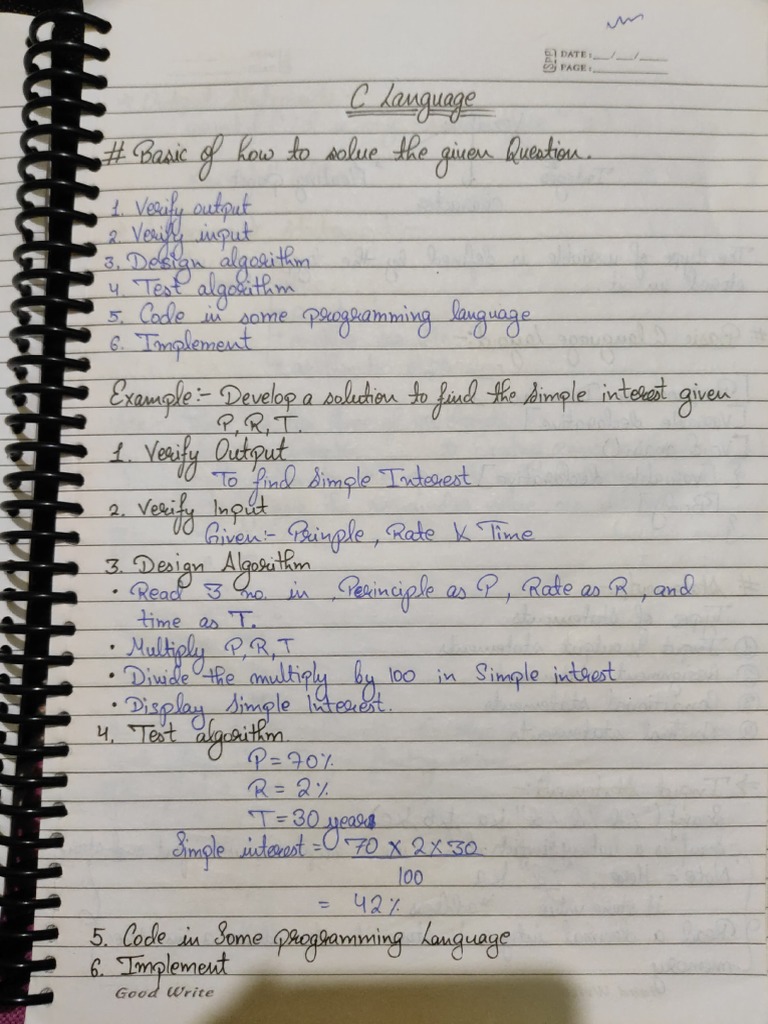 Spp DATE: __/__/__
PAGE: ______
C Language
# Basic of how to solve the given Question.
1. Verify output
2. Verify input
3. Design algorithm
4. Test algorithm
5. Code in some programming language
6. Implement
Example:- Develop a solution to find the simple interest given
P, R, T.
1. Verify Output
To find Simple Interest
2. Verify Input
Given:- Prinple, Rate & Time
3. Design Algorithm
• Read 3 no. in, Perinciple as P, Rate as R, and
time as T.
• Multiply P, R, T
• Divide the multiply by 100 in Simple intrest
• Display Simple Interest.
4. Test algorithm.
P = 70%
R = 2%
T = 30 years
Simple interest = 70 x 2 x 30
100
= 42%
5. Code in Some programming Language
6. Implement
Good Write